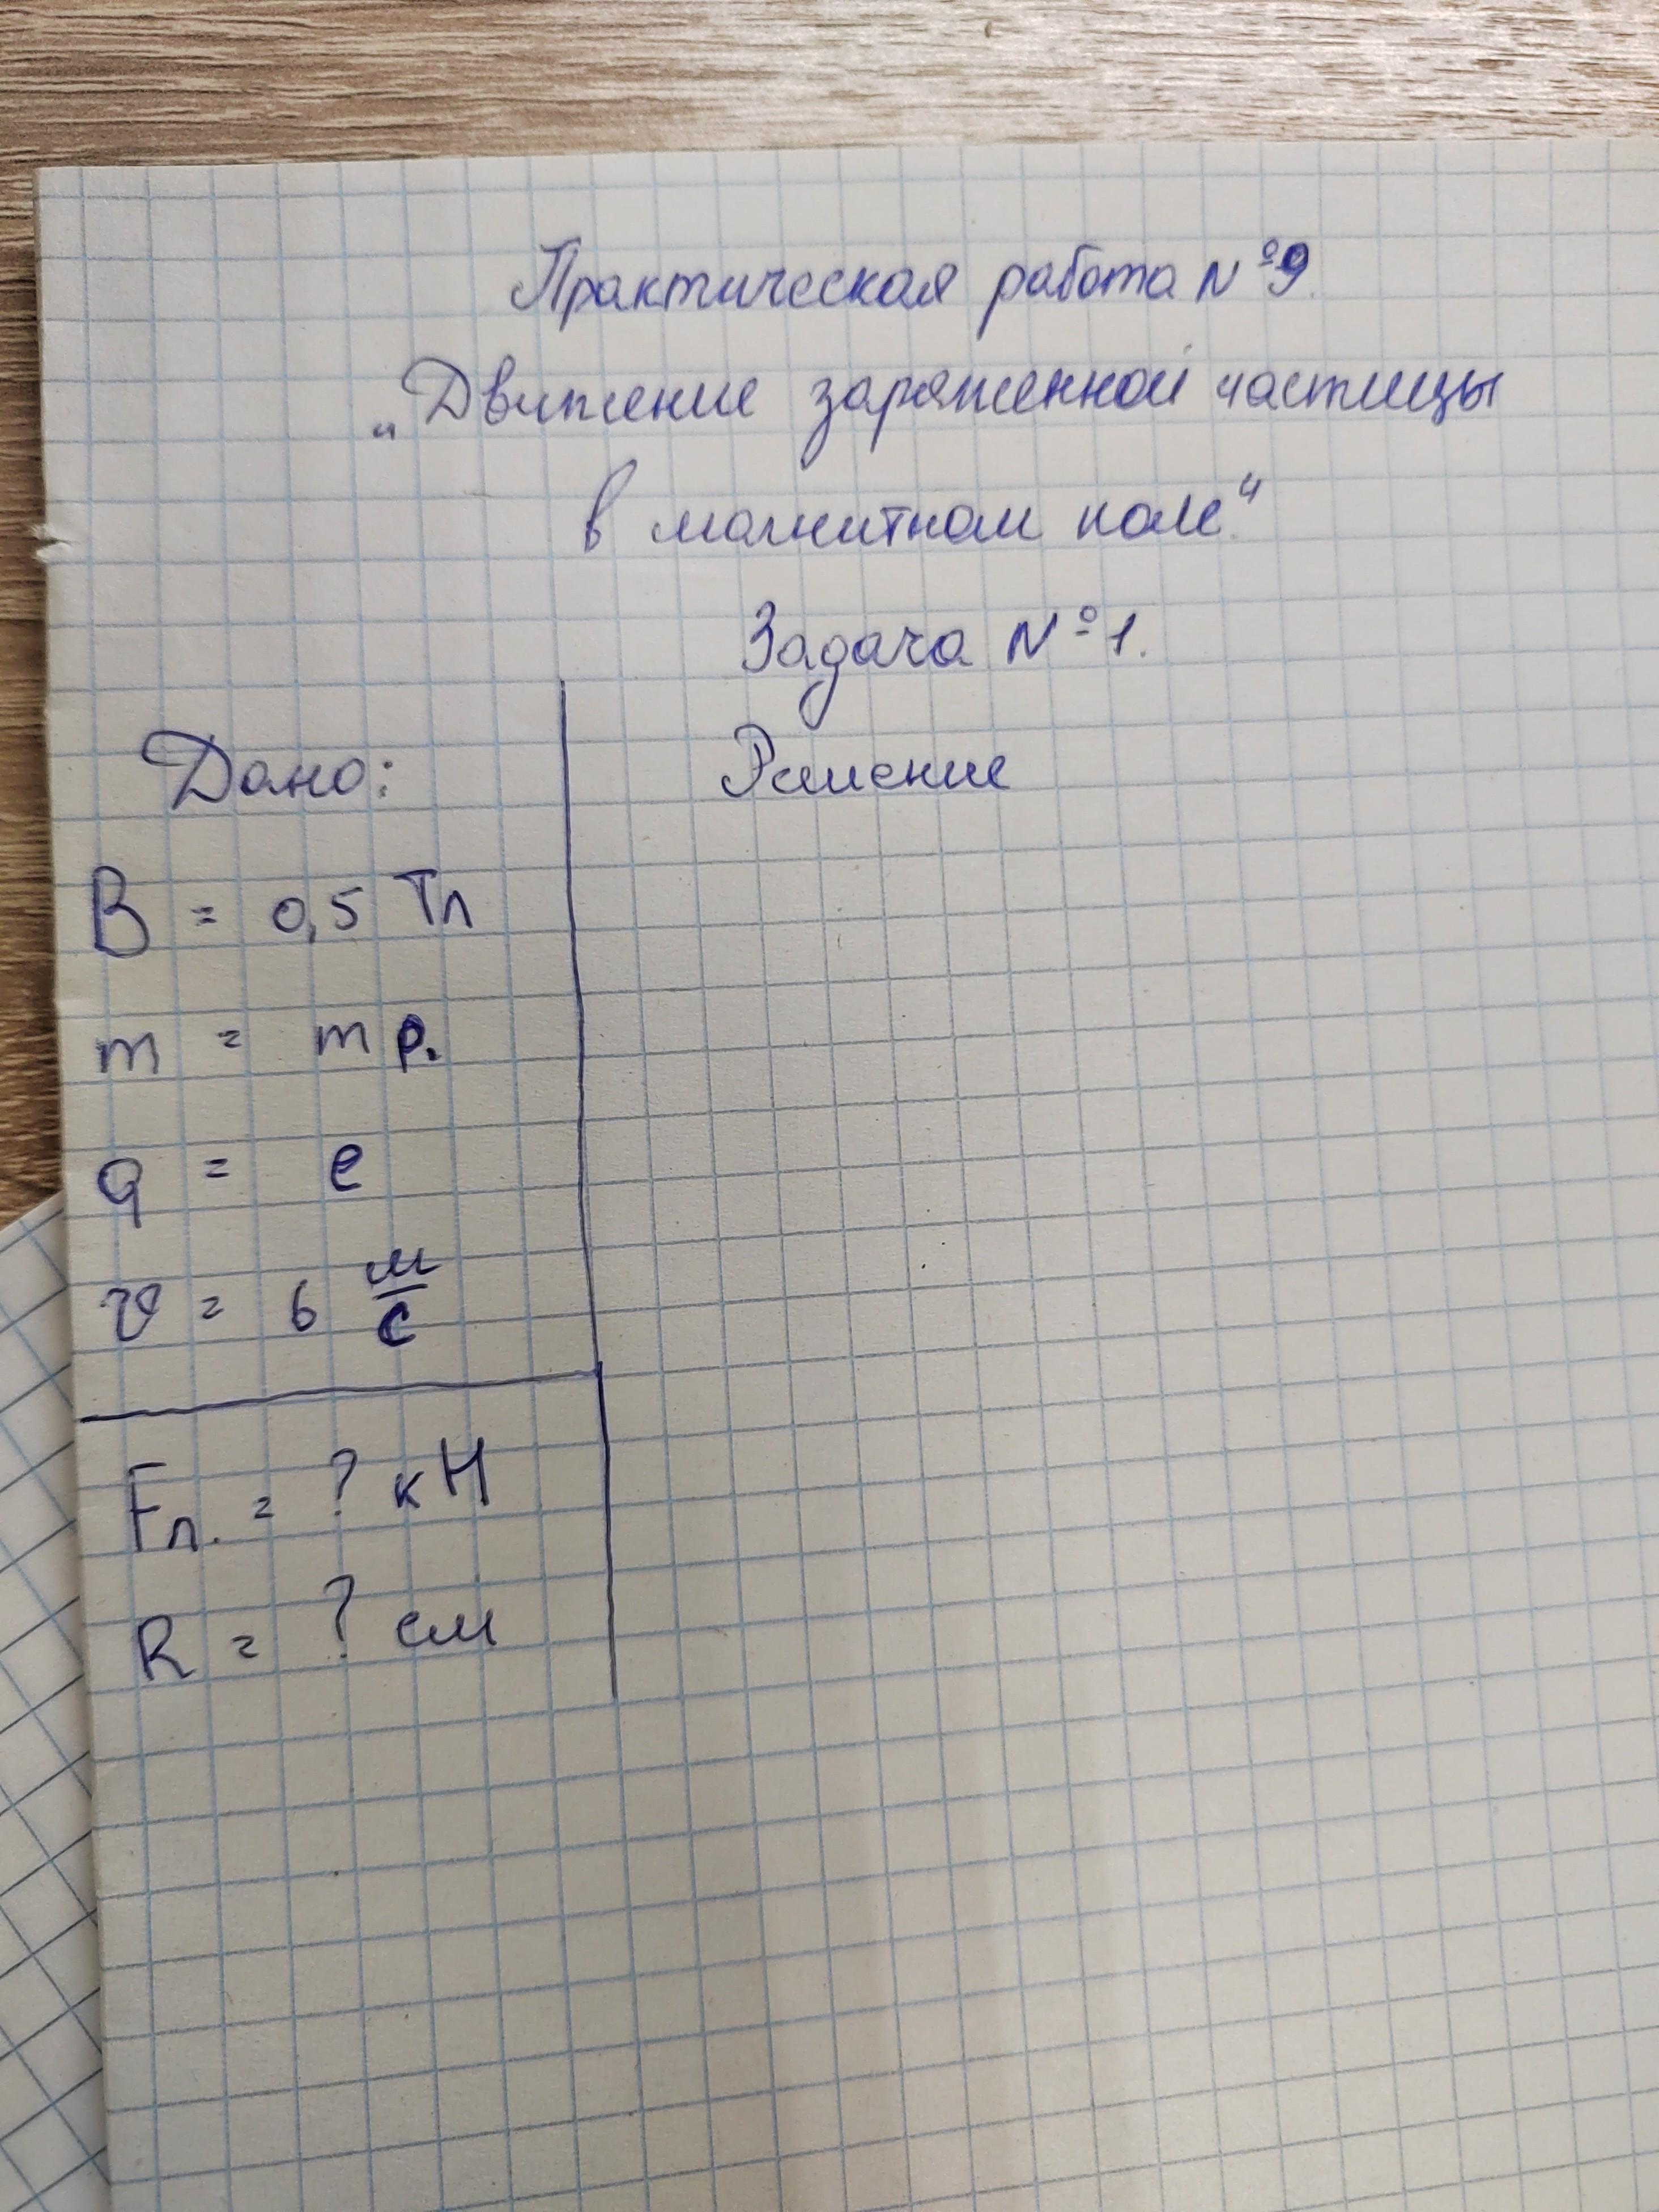 Практическая работа №9.
„Движение заряженной частицы
в магнитном поле“
Задача №1.
Дано:
Решение
B = 0,5 Тл
m = m p.
q = e
v = 6 м/с
Fл. = ? кН
R = ? см